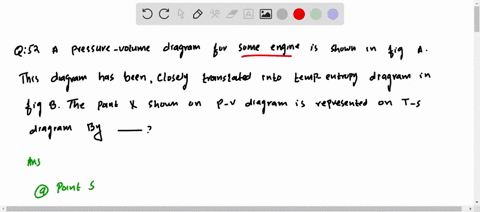 Q:52 A pressure-volume diagram for some engine is shown in fig A.
This diagram has been, closely translated into temp-entropy diagram in
fig B. The point X shown on P-V diagram is represented on T-s
diagram By — ?
Ans
@ Point S